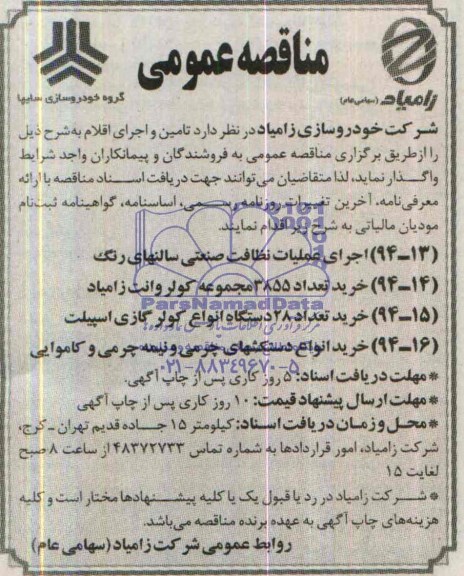 مناقصه عمومی
زامیاد (سهامی عام)
گروه خودروسازی سایپا
شرکت خودروسازی زامیاد در نظر دارد تامین و اجرای اقلام به‌شرح ذیل
را ازطریق برگزاری مناقصه عمومی به فروشندگان و پیمانکاران واجد شرایط
واگذار نماید، لذا متقاضیان می‌توانند جهت دریافت اسناد مناقصه با ارائه
معرفی‌نامه، آخرین تغییرات روزنامه رسمی، اساسنامه، گواهینامه ثبت‌نام
مودیان مالیاتی به شرح زیر اقدام نمایند.
(۱۳-۹۴) اجرای عملیات نظافت صنعتی سالنهای رنگ
(۱۴-۹۴) خرید تعداد ۳۸۵۵ مجموعه کولر وانت زامیاد
ParsNamadData
(۱۵-۹۴) خرید تعداد ۲۸ دستگاه انواع کولر گازی اسپیلت
(۱۶-۹۴) خرید انواع دستکشهای چرمی و نیمه چرمی و کاموایی
۰۲۱-۸۸۳۴۹۶۷۰-۵
*مهلت دریافت اسناد: ۵ روز کاری پس از چاپ آگهی.
*مهلت ارسال پیشنهاد قیمت: ۱۰ روز کاری پس از چاپ آگهی
*محل و زمان دریافت اسناد: کیلومتر ۱۵ جاده قدیم تهران - کرج،
شرکت زامیاد، امور قراردادها به شماره تماس ۴۸۳۷۲۷۳۳ از ساعت ۸ صبح
لغایت ۱۵
* شرکت زامیاد در رد یا قبول یک یا کلیه پیشنهادها مختار است و کلیه
هزینه‌های چاپ آگهی به عهده برنده مناقصه می‌باشد.
روابط عمومی شرکت زامیاد (سهامی عام)